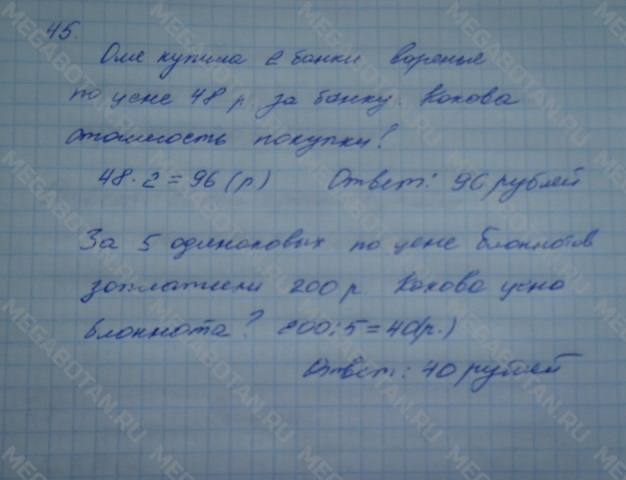 45.
Оля купила 2 банки варенья
по цене 48 р. за банку. Какова
стоимость покупки?
48 · 2 = 96 (р.) Ответ: 96 рублей
За 5 одинаковых по цене блокнотов
заплатили 200 р. Какова цена
блокнота? 200 : 5 = 40(р.)
Ответ: 40 рублей
MEGABOTAN.RU